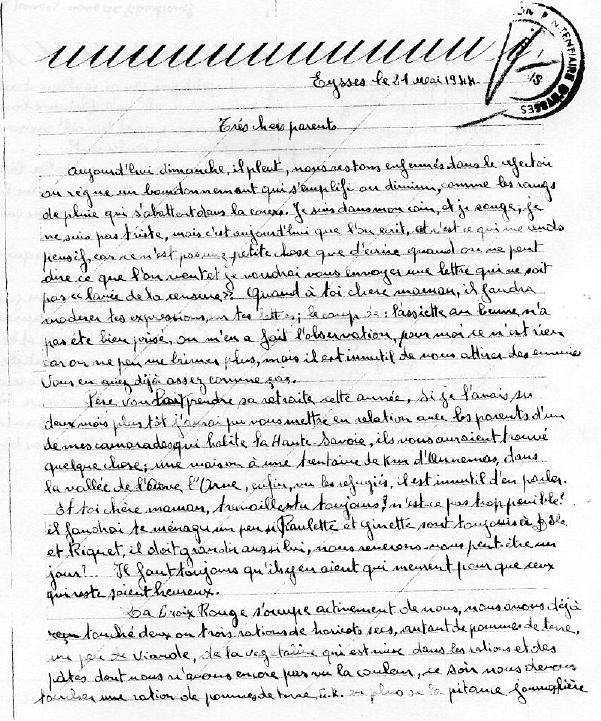 PENITENTIAIRE D'EYSSES
Eysses le 21 Mai 1944
Très chers parents
Aujourd'hui dimanche, il pleut, nous restons enfermés dans le refectoir
ou règne un bourdonnement qui s'emplifie ou diminu, comme les rangs
de pluie qui s'abattent dans la cours. Je suis dans mon coin, et je songe, je
ne suis pas triste, mais c'est aujourd'hui que l'on écrit, et c'est ce qui me rends
pensif, car ce n'est pas une petite chose que d'écrire quand on ne peut
dire ce que l'on veut et je voudrai vous envoyer une lettre qui ne soit
pas "lavée de la censure". Quand à toi chere maman, il faudra
moderer tes expressions, sur tes lettres; le coup de: l'assiette au beurre, n'a
pas été bien prisé, on m'en a fait l'observation, pour moi ce n'est rien
car on ne peu me brimer plus, mais il est inutil de vous attirer des ennuies
vous en avez déjà assez comme ças.
Père va prendre sa retraite cette année, si je l'avais su
deux mois plus tôt j'aurai pu vous mettre en relation avec les parents d'un
de mes camarades qui habite la Haute-Savoie, ils vous auraient trouvé
quelque chose; une maison à une trentaine de Km d'Annemas, dans
la vallée de l'Arve, enfin, vu les réfugiés, il est inutil d'en parler.
Et toi chère maman, travailles tu toujours? n'est-ce pas trop penible?
il faudrai te ménager un peu. Paulette et Ginette sont toujours à
et Riquet, il doit grandir aussi lui, nous reverons-nous peut-être un
jour? Il faut toujours qu'ils y en aient qui meurent pour que ceux
qui reste soient heureux.
La Croix Rouge s'occupe activement de nous, nous avons déjà
touché deux ou trois rations de haricots secs, autant de pommes de terre,
un peu de viande, de la vegetaline qui est mise dans les rations et des
pâtes dont nous n'avons encore pas vu la couleur, ce soir nous devons
toucher une ration de pommes de terre, en plus de la pitance